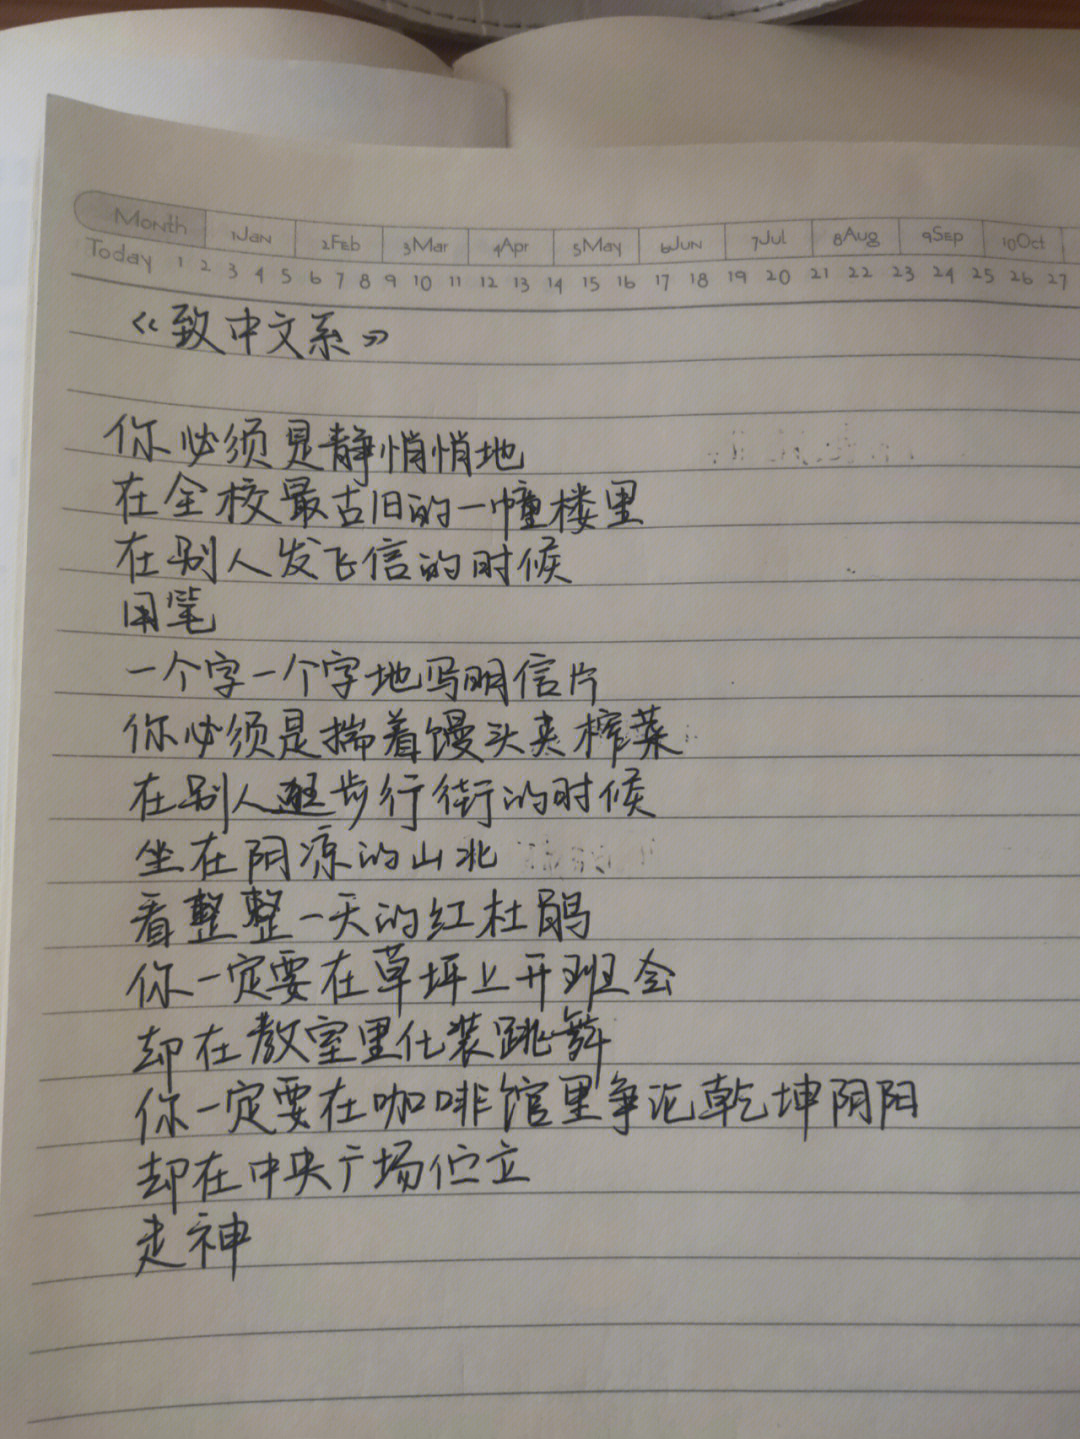 Month 1Jan 2Feb 3Mar 4Apr 5May 6Jun 7Jul 8Aug 9Sep 10Oct
Today 1 2 3 4 5 6 7 8 9 10 11 12 13 14 15 16 17 18 19 20 21 22 23 24 25 26 27
《致中文系》
你必须是静悄悄地
在全校最古旧的一幢楼里
在别人发飞信的时候
用笔
一个字一个字地写明信片
你必须是揣着馒头夹榨菜
在别人逛步行街的时候
坐在阴凉的山北
看整整一天的红杜鹃
你一定要在草坪上开班会
却在教室里化装跳舞
你一定要在咖啡馆里争论乾坤阴阳
却在中央广场伫立
走神